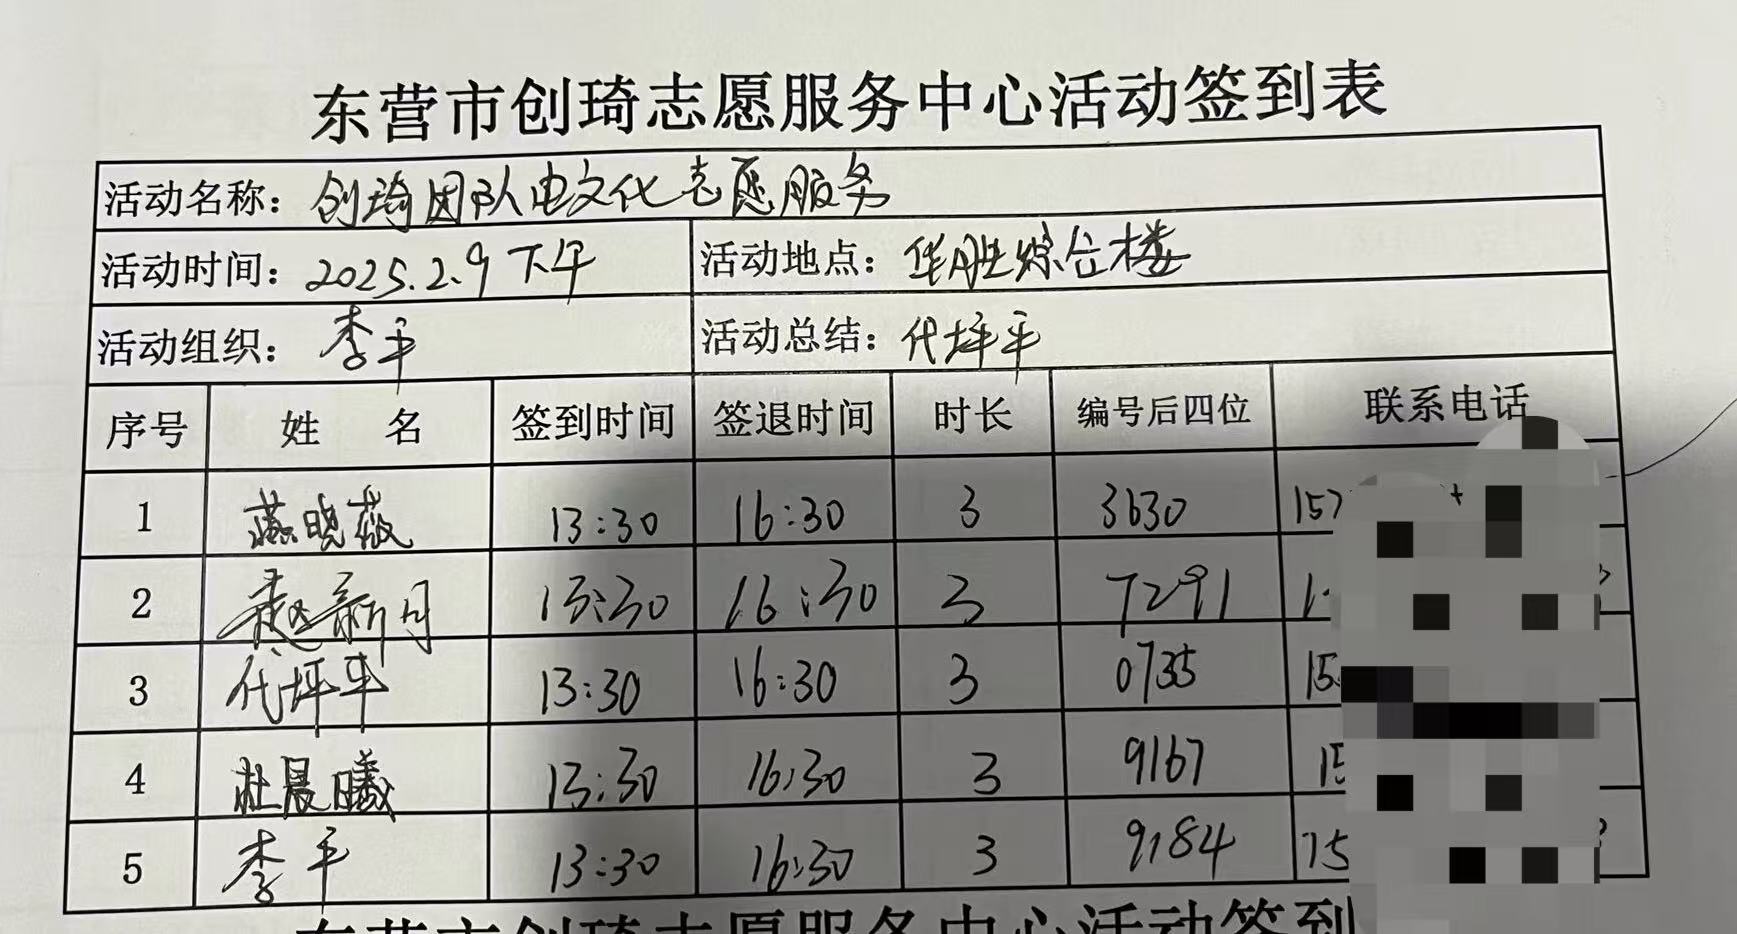 东营市创琦志愿服务中心活动签到表
活动名称：创琦团队电文化志愿服务
活动时间：2025.2.9下午 活动地点：华胜综合楼
活动组织：李平 活动总结：代坪平
序号 姓 名 签到时间 签退时间 时长 编号后四位 联系电话
1 燕晓薇 13:30 16:30 3 3630 157
2 赵新月 13:30 16:30 3 7291 1
3 代坪平 13:30 16:30 3 0735 15
4 杜晨曦 13:30 16:30 3 9167 15
5 李平 13:30 16:30 3 9184 15
东营市创琦志愿服务中心活动签到